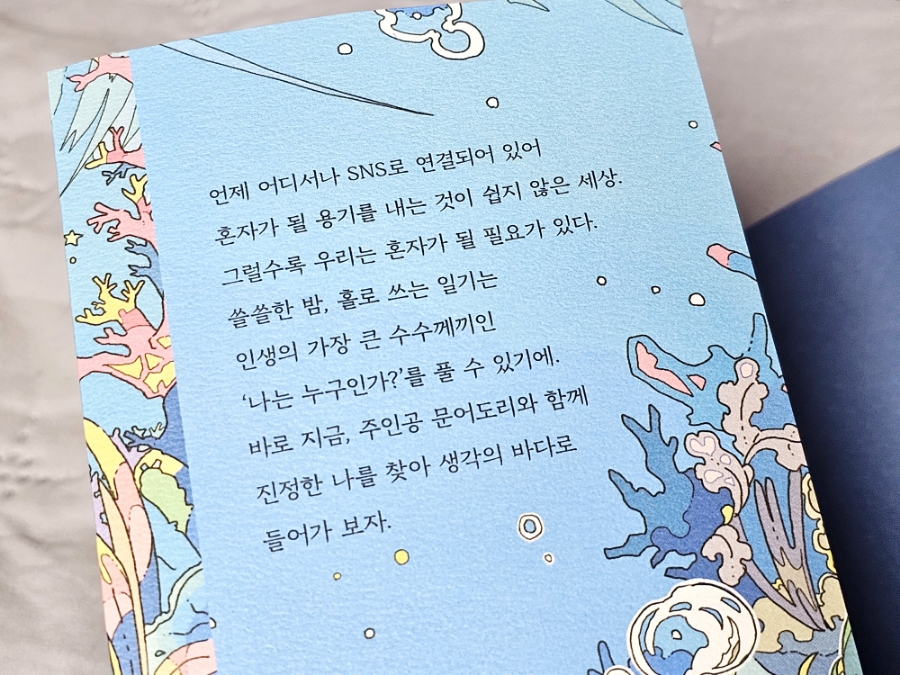 언제 어디서나 SNS로 연결되어 있어
혼자가 될 용기를 내는 것이 쉽지 않은 세상.
그럴수록 우리는 혼자가 될 필요가 있다.
쓸쓸한 밤, 홀로 쓰는 일기는
인생의 가장 큰 수수께끼인
‘나는 누구인가?’를 풀 수 있기에.
바로 지금, 주인공 문어도리와 함께
진정한 나를 찾아 생각의 바다로
들어가 보자.